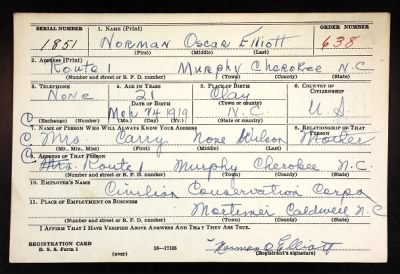 SERIAL NUMBER 1. NAME (Print) ORDER NUMBER
1851 Norman Oscar Elliott 638
(First) (Middle) (Last)
2. ADDRESS (Print)
Route 1 Murphy Cherokee N.C.
(Number and street or R. F. D. number) (Town) (County) (State)
3. TELEPHONE 4. AGE IN YEARS 5. PLACE OF BIRTH 6. COUNTRY OF CITIZENSHIP
None 21 Clay
DATE OF BIRTH (Town or county)
Mch 24 1919 N.C. U S
(Exchange) (Number) (Mo.) (Day) (Yr.) (State or country)
7. NAME OF PERSON WHO WILL ALWAYS KNOW YOUR ADDRESS 8. RELATIONSHIP OF THAT PERSON
Mrs. Carry None Wilson Mother
(Mr., Mrs., Miss) (First) (Middle) (Last)
9. ADDRESS OF THAT PERSON
Route 1 Murphy Cherokee N.C.
(Number and street or R. F. D. number) (Town) (County) (State)
10. EMPLOYER'S NAME
Civilian Conservation Corps
11. PLACE OF EMPLOYMENT OR BUSINESS
Mortimer Caldwell N.C
(Number and street or R. F. D. number) (Town) (County) (State)
I AFFIRM THAT I HAVE VERIFIED ABOVE ANSWERS AND THAT THEY ARE TRUE.
REGISTRATION CARD
D. S. S. Form 1 16—17105 Norman O Elliott
(over) (Registrant's signature)